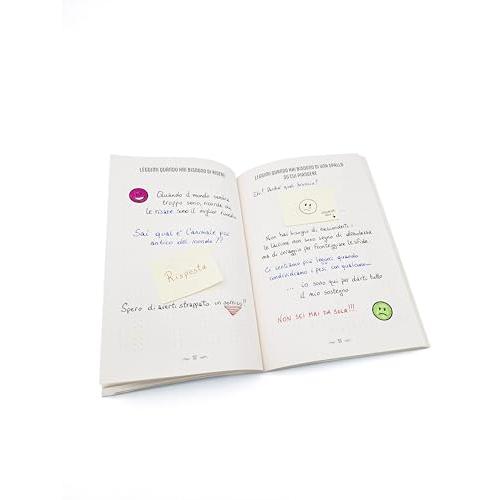 LEGGIMI QUANDO HAI BISOGNO DI RIDERE
Quando il mondo sembra
troppo serio, ricorda che
le risate sono il miglior rimedio
Sai qual è l'animale più
antico del mondo ??
Risposta
Spero di averti strappato un sorriso
LEGGIMI QUANDO HAI BISOGNO DI UNA SPALLA
SU CUI PIANGERE
Ehi! Perché quel broncio?
Non hai bisogno di nasconderti,
le lacrime non sono segno di debolezza
ma di coraggio per fronteggiare le sfide
Ci sentiamo più leggeri quando
condividiamo i pesi con qualcuno...
... io sono qui per darti tutto
il mio sostegno
NON SEI MAI DA SOLA!!!